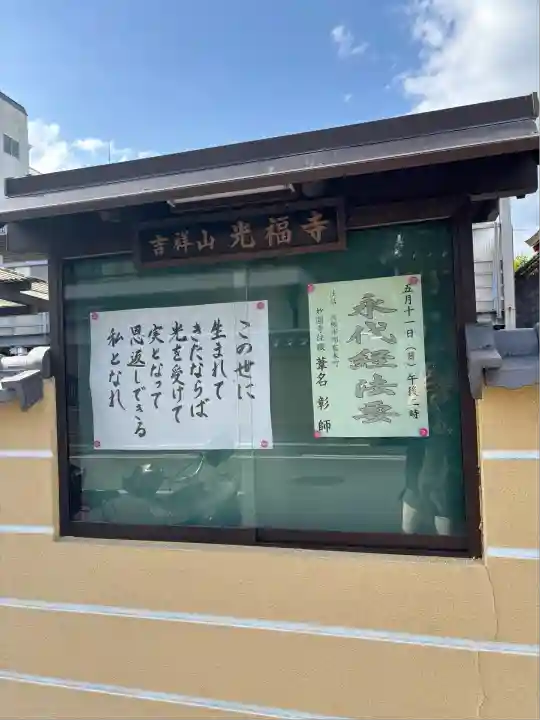 吉祥山 光福寺
五月十一日(日)午後二時
永代経法要
妙圓寺住職 葦名 彰 師
この世に
生まれて
きたならば
光を受けて
実となって
恩返しできる
私となれ